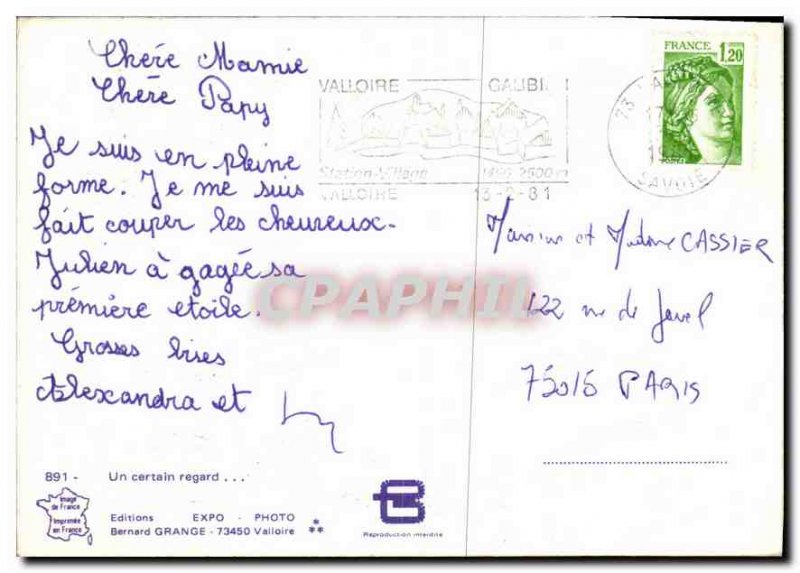 Chère Mamie
Chère Papy
Je suis en pleine
forme. Je me suis
fait couper les cheureux.
Julien à gagée sa
prémière etoile.
Grosses bises
Alexandra et
VALLOIRE GALIBI
Station-Village 2500 m
VALLOIRE 13-2-81
FRANCE 1,20
POSTES
73
SAVOIE
Monsieur et Madame CASSIER
122 rue de Javel
75015 PARIS
CPAPHIL
891 - Un certain regard ...
Image
de France
Imprimée
en France
Editions EXPO - PHOTO
Bernard GRANGE - 73450 Valloire
Reproduction interdite